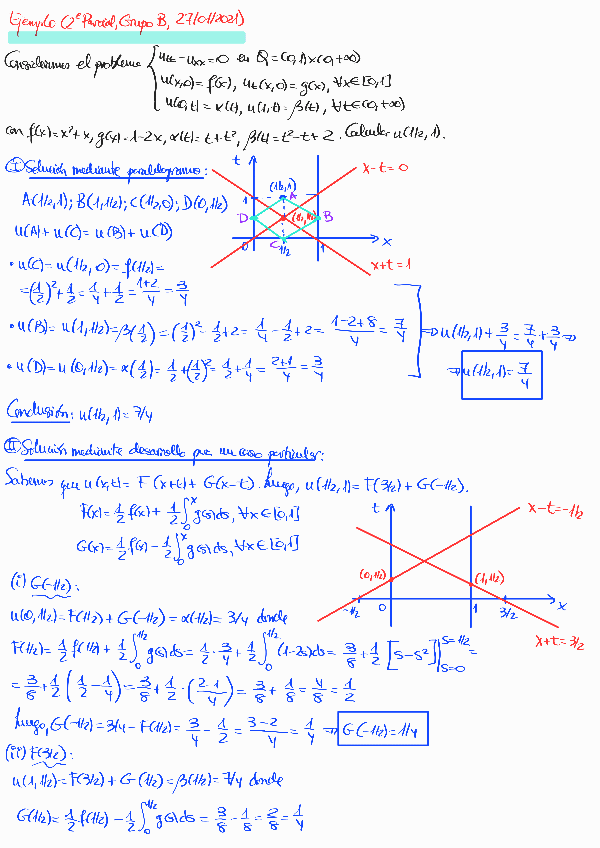 Ejemplo (2º Parcial, Grupo B, 27/01/2021)
Consideremos el problema { utt - uxx = 0 en Q = (0,1)×(0,+∞)
u(x,0) = f(x), ut(x,0) = g(x), ∀x∈[0,1]
u(0,t) = α(t), u(1,t) = β(t), ∀t∈(0,+∞)
con f(x) = x²+x, g(x) = 1-2x, α(t) = t+t², β(t) = t²-t+2. Calcular u(1/2,1).
(I) Solución mediante paralelogramo:
A(1/2,1); B(1,1/2); C(1/2,0); D(0,1/2)
u(A)+u(C) = u(B)+u(D)
t
x-t=0
(1/2,1)
1
A
D
(1/2,1/2)
B
0
C
1/2
1
x
x+t=1
• u(C) = u(1/2,0) = f(1/2) =
= (1/2)² + 1/2 = 1/4 + 1/2 = (1+2)/4 = 3/4
• u(B) = u(1,1/2) = β(1/2) = (1/2)² - 1/2 + 2 = 1/4 - 1/2 + 2 = (1-2+8)/4 = 7/4
⇒ u(1/2,1) + 3/4 = 7/4 + 3/4 ⇒
• u(D) = u(0,1/2) = α(1/2) = 1/2 + (1/2)² = 1/2 + 1/4 = (2+1)/4 = 3/4
⇒ u(1/2,1) = 7/4
Conclusión: u(1/2,1) = 7/4
(II) Solución mediante desarrollo para un caso particular:
Sabemos que u(x,t) = F(x+t) + G(x-t). Luego, u(1/2,1) = F(3/2) + G(-1/2).
F(x) = 1/2 f(x) + 1/2 ∫₀ˣ g(s)ds, ∀x∈[0,1]
G(x) = 1/2 f(x) - 1/2 ∫₀ˣ g(s)ds, ∀x∈[0,1]
t
x-t=-1/2
(0,1/2)
(1,1/2)
-1/2
0
1
3/2
x
x+t=3/2
(i) G(-1/2):
u(0,1/2) = F(1/2) + G(-1/2) = α(1/2) = 3/4 donde
F(1/2) = 1/2 f(1/2) + 1/2 ∫₀^{1/2} g(s)ds = 1/2 · 3/4 + 1/2 ∫₀^{1/2} (1-2s)ds = 3/8 + 1/2 [s-s²]|_{s=0}^{s=1/2} =
= 3/8 + 1/2 (1/2 - 1/4) = 3/8 + 1/2 · ((2-1)/4) = 3/8 + 1/8 = 4/8 = 1/2
Luego, G(-1/2) = 3/4 - F(1/2) = 3/4 - 1/2 = (3-2)/4 = 1/4 ⇒ G(-1/2) = 1/4
(ii) F(3/2):
u(1,1/2) = F(3/2) + G(1/2) = β(1/2) = 7/4 donde
G(1/2) = 1/2 f(1/2) - 1/2 ∫₀^{1/2} g(s)ds = 3/8 - 1/8 = 2/8 = 1/4